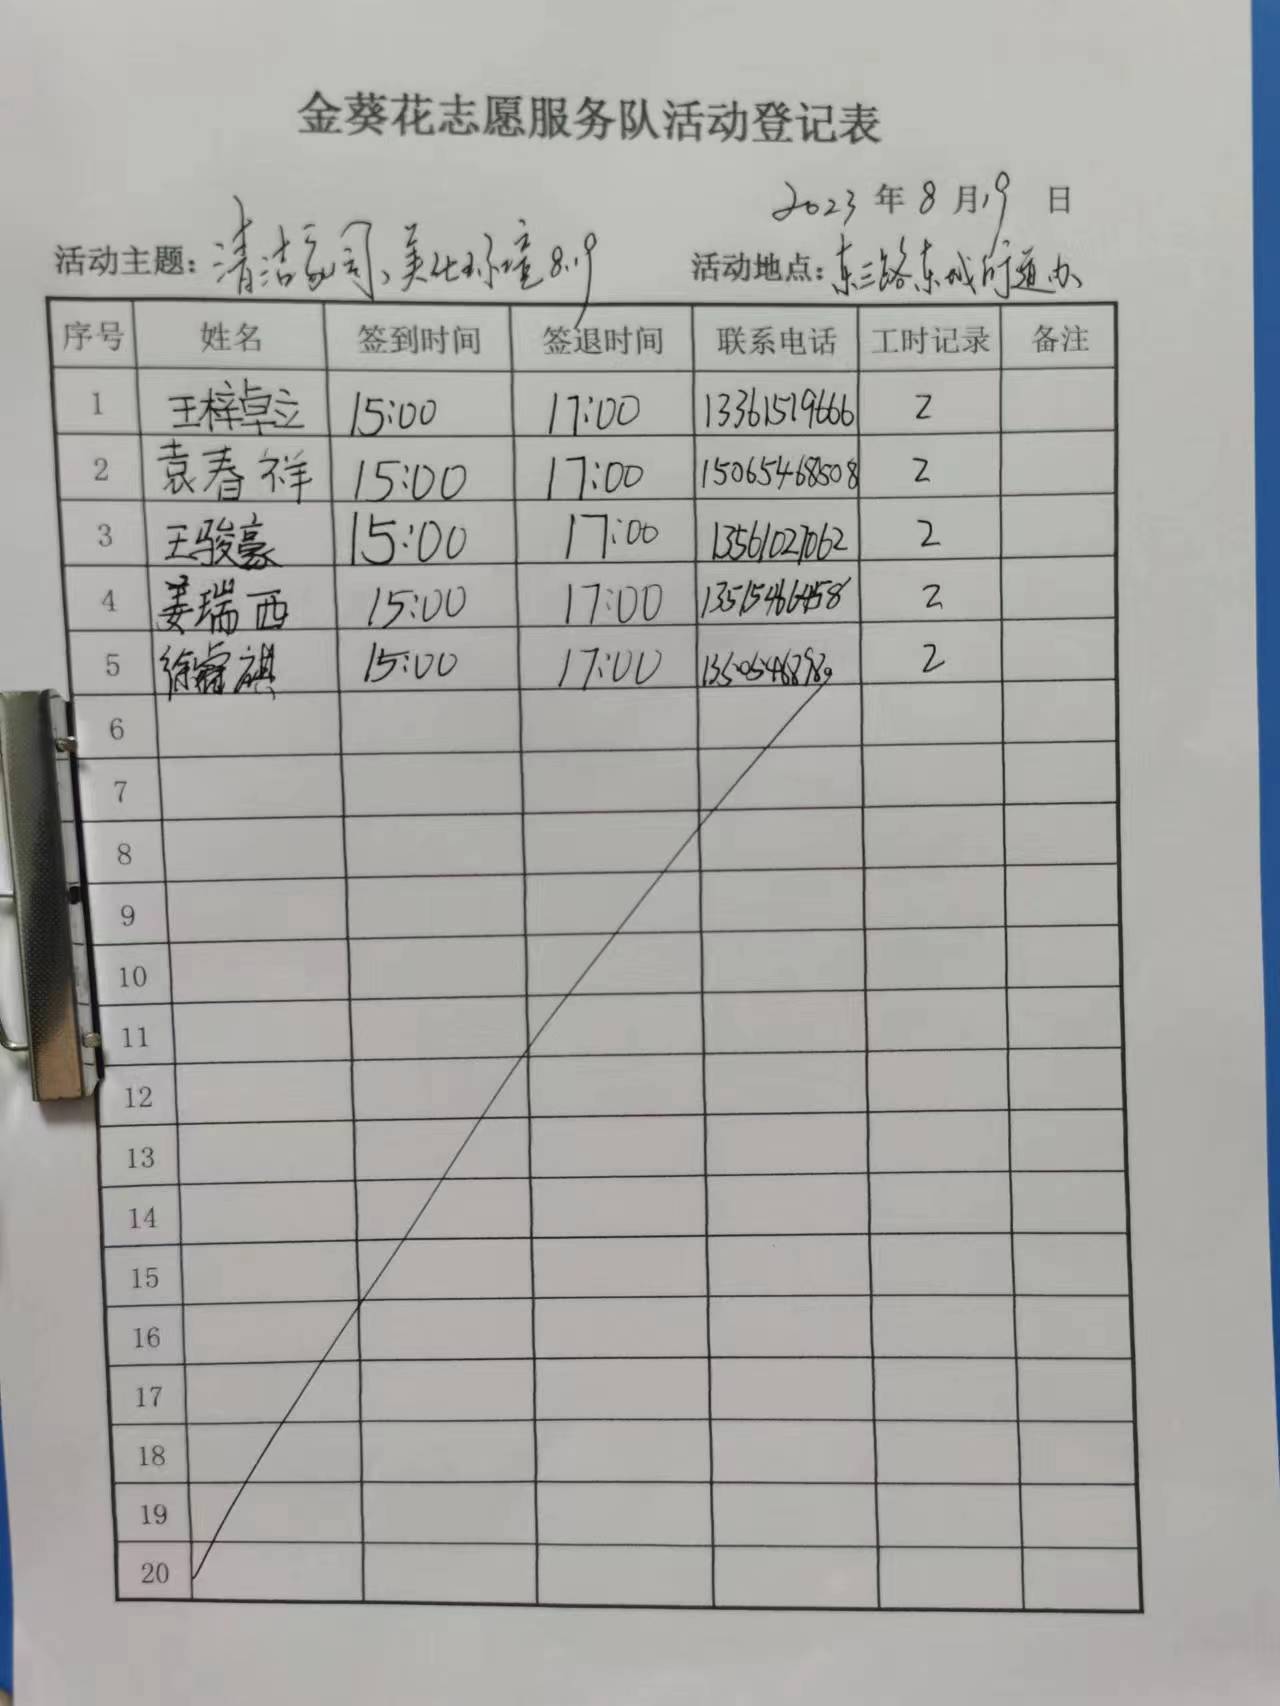 金葵花志愿服务队活动登记表
2023 年 8 月 19 日
活动主题: 清洁家园、美化环境 8.19 活动地点: 东三路东城街道办
序号 姓名 签到时间 签退时间 联系电话 工时记录 备注
1 王梓卓立 15:00 17:00 13361519666 2
2 袁春祥 15:00 17:00 15065468508 2
3 王骏豪 15:00 17:00 13561027062 2
4 姜瑞西 15:00 17:00 2
5 徐睿祺 15:00 17:00 2
6
7
8
9
10
11
12
13
14
15
16
17
18
19
20